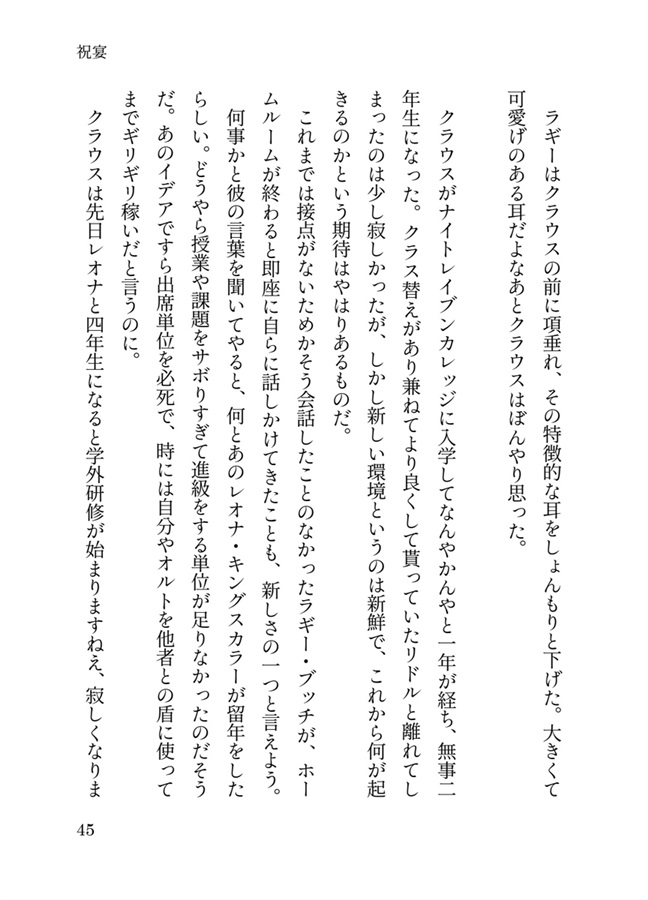 祝宴
　ラギーはクラウスの前に項垂れ、その特徴的な耳をしょんもりと下げた。大きくて
可愛げのある耳だよなあとクラウスはぼんやり思った。
　クラウスがナイトレイブンカレッジに入学してなんやかんやと一年が経ち、無事二
年生になった。クラス替えがあり兼ねてより良くして貰っていたリドルと離れてし
まったのは少し寂しかったが、しかし新しい環境というのは新鮮で、これから何が起
きるのかという期待はやはりあるものだ。
　これまでは接点がないためかそう会話したことのなかったラギー・ブッチが、ホー
ムルームが終わると即座に自らに話しかけてきたことも、新しさの一つと言えよう。
　何事かと彼の言葉を聞いてやると、何とあのレオナ・キングスカラーが留年をした
らしい。どうやら授業や課題をサボりすぎて進級をする単位が足りなかったのだそう
だ。あのイデアですら出席単位を必死で、時には自分やオルトを他者との盾に使って
までギリギリ稼いだと言うのに。
　クラウスは先日レオナと四年生になると学外研修が始まりますねえ、寂しくなりま
45